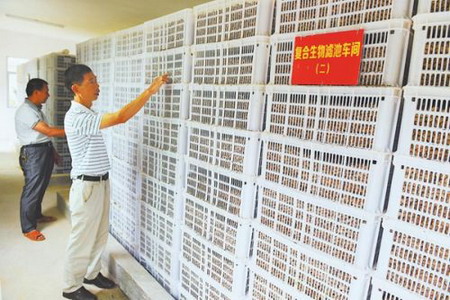 复合生物滤池车间
(二)